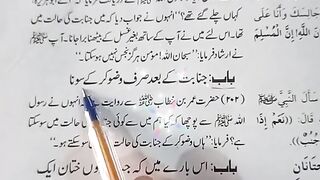 جَالِسَكَ وَأَنَا عَلَى کہاں چلے گئے تھے؟‘‘ انہوں نے جواب دیا کہ میں جنابت کی حالت میں تھا، اس لیے
نَ اللَّهِ! إِنَّ الْمُسْلِمَ میں نے آپ کے ساتھ بغیر غسل کے بیٹھنا برا جانا۔ آپ ﷺ
نے ارشاد فرمایا: ’’سبحان اللہ! مومن ہرگز نجس نہیں ہو سکتا۔‘‘
باب: جنابت کے بعد صرف وضو کر کے سونا
سَأَلَ النَّبِيَّ ﷺ (۲۰۲) حضرت عمر بن خطاب سے روایت ہے انہوں نے رسول
قَالَ: ((نَعَمْ إِذَا اللہ ﷺ سے پوچھا کہ کیا ہم میں سے کوئی جنابت کی حالت میں سو سکتا
ہے؟ فرمایا: ’’ہاں وضو کر کے جنابت کی حالت میں سو سکتے ہو۔‘‘
خِتَانَانِ باب: اس بارے میں کہ جب دونوں ختان ایک